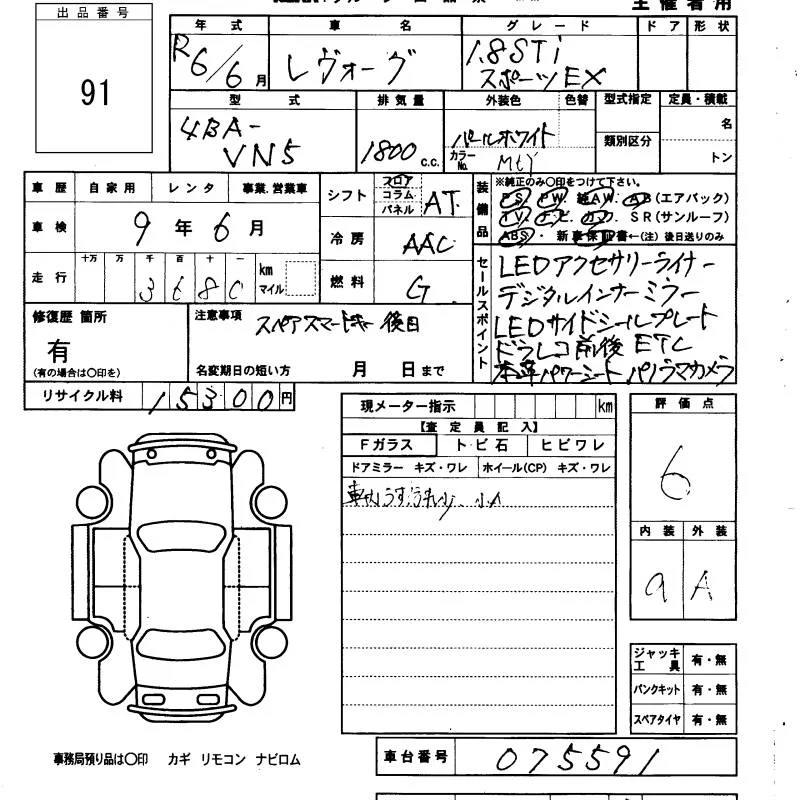 主催者用
出品番号
91
年式 車名 グレード ドア 形状
R6/6月 レヴォーグ 1.8STi
スポーツEX
型式 排気量 外装色 色替 型式指定 定員・積載
4BA-
VN5
1800 c.c.
パールホワイト
カラーNo.
類別区分
名
トン
車歴 自家用 レンタ 事業.営業車
車検 9年6月
走行 十万 万 千 百 十 一 km
マイル
シフト フロア
コラム
パネル
AT
冷房 AAC
燃料 G
装備品
※純正のみ〇印をつけて下さい。
PS. PW. 純AW. AB(エアバッグ)
TV. ナビ. カワ. SR(サンルーフ)
ABS・ 新車保証書←(注)後日送りのみ
セールスポイント
LEDアクセサリーライナー
デジタルインナーミラー
LEDサイドシールプレート
ドラレコ前後 ETC
本革パワーシート パノラマカメラ
修復歴 箇所
有
(有の場合は〇印を)
注意事項 スペアスマートキー後日
名変期日の短い方 月 日まで
リサイクル料 15300円
現メーター指示 km
【査定員記入】
Fガラス トビ石 ヒビワレ
ドアミラー キズ・ワレ ホイール(CP) キズ・ワレ
評価点
6
内装 外装
a A
ジャッキ
工具
有・無
パンクキット 有・無
スペアタイヤ 有・無
事務局預り品は〇印 カギ リモコン ナビロム
車台番号 075591